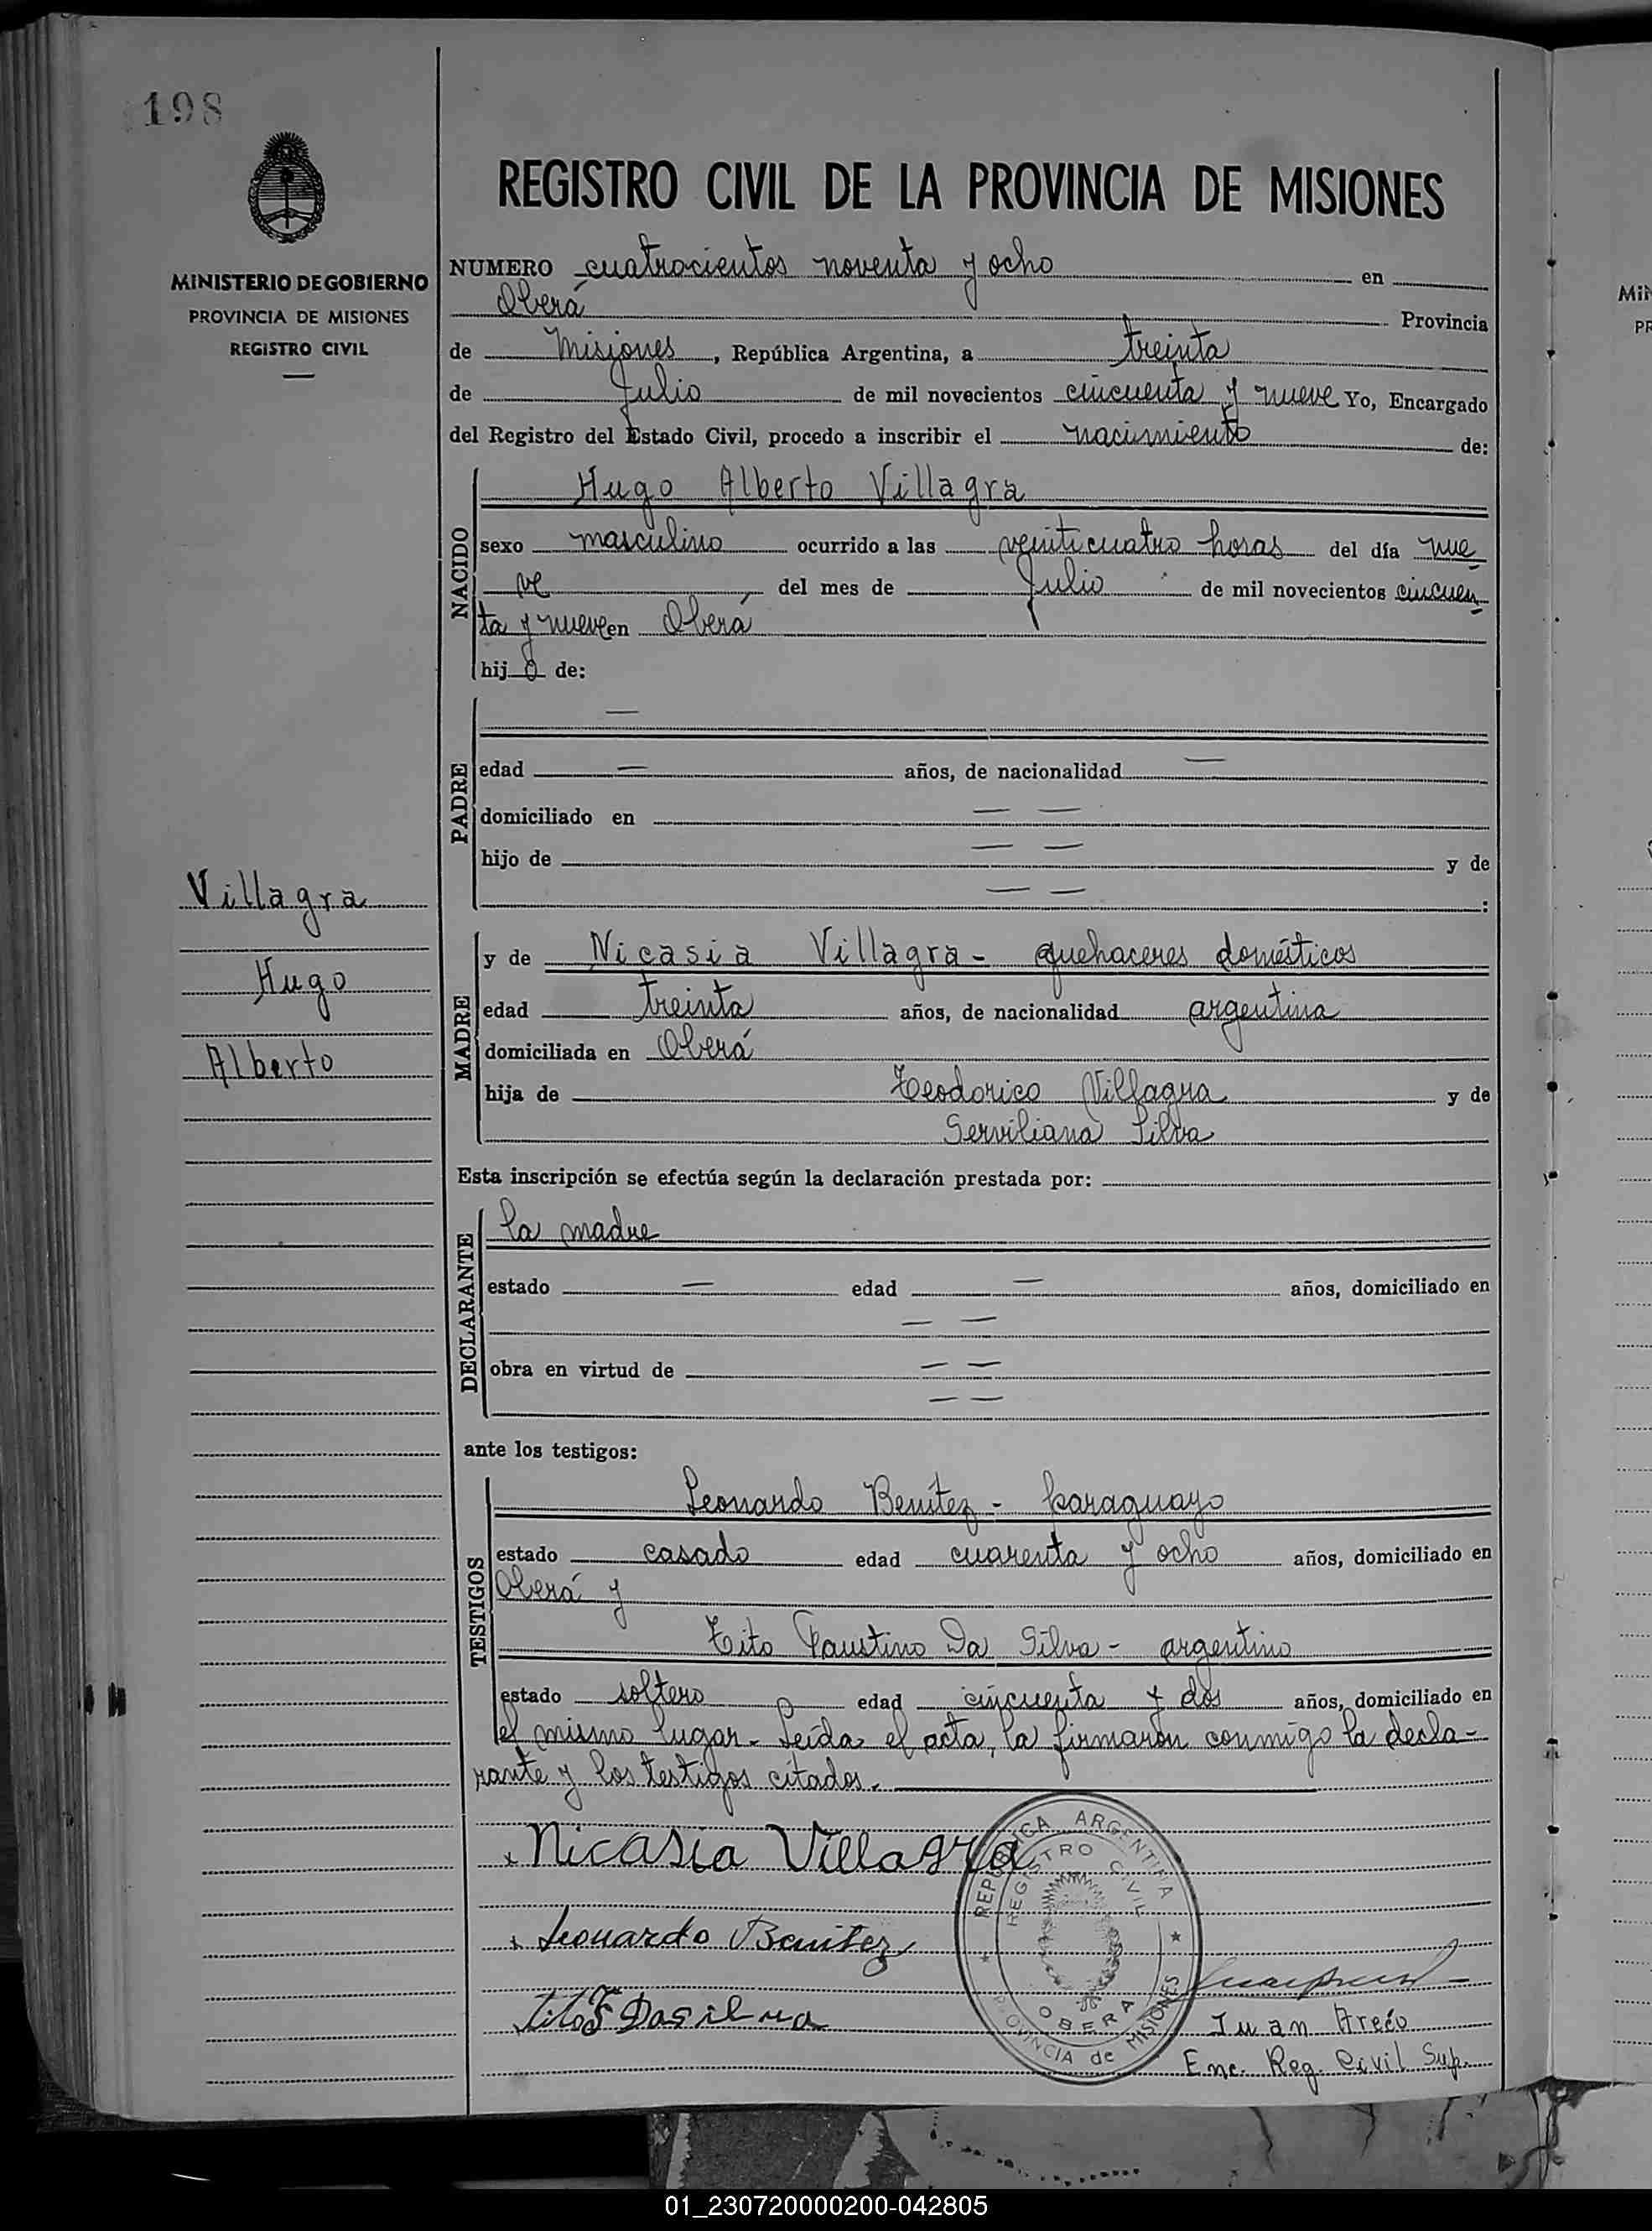 198
REGISTRO CIVIL DE LA PROVINCIA DE MISIONES
MINISTERIO DE GOBIERNO
PROVINCIA DE MISIONES
REGISTRO CIVIL
NUMERO cuatrocientos noventa y ocho en
Oberá Provincia
de Misiones, República Argentina, a treinta
de Julio de mil novecientos cincuenta y nueve Yo, Encargado
del Registro del Estado Civil, procedo a inscribir el nacimiento de:
NACIDO
Hugo Alberto Villagra
sexo masculino ocurrido a las veinticuatro horas del día nue
ve del mes de Julio de mil novecientos cincuen
ta y nueve en Oberá
hijo de:
PADRE
—
edad — años, de nacionalidad —
domiciliado en — —
hijo de — — y de
— — :
Villagra
Hugo
Alberto
MADRE
y de Nicasia Villagra - quehaceres domésticos
edad treinta años, de nacionalidad argentina
domiciliada en Oberá
hija de Teodorico Villagra y de
Serviliana Silva
Esta inscripción se efectúa según la declaración prestada por:
DECLARANTE
la madre
estado — edad — años, domiciliado en
— —
obra en virtud de — —
— —
ante los testigos:
TESTIGOS
Leonardo Benítez - paraguayo
estado casado edad cuarenta y ocho años, domiciliado en
Oberá y
Tito Faustino Da Silva - argentino
estado soltero edad cincuenta y dos años, domiciliado en
el mismo lugar. Leída el acta, la firmaron conmigo la decla-
rante y los testigos citados.
Nicasia Villagra
Leonardo Benitez
Tito F Dasilva
REPUBLICA ARGENTINA
REGISTRO CIVIL
OBERA
PROVINCIA de MISIONES
Juan Areco
Enc. Reg. Civil Sup.
MIN
PR
01_230720000200-042805